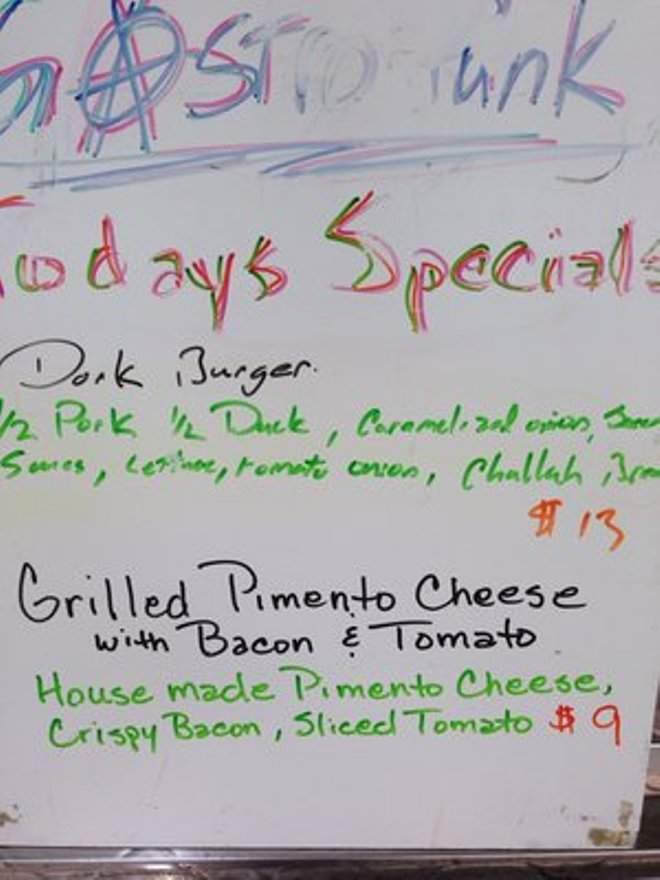 GASTro unk
Todays Specials
Dork Burger.
1/2 Pork 1/2 Duck, Caramelized onion,
Lettuce, tomato onion, Challah
$13
Grilled Pimento Cheese
with Bacon & Tomato
House made Pimento Cheese,
Crispy Bacon, Sliced Tomato $9